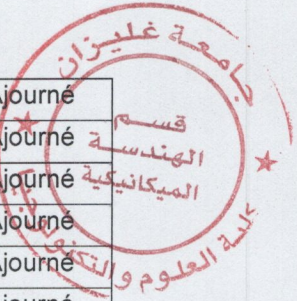 جامعة غليزان
قسم
الهندسة
الميكانيكية
كلية العلوم والتكنولوجيا
Ajourné
Ajourné
Ajourné
Ajourné
Ajourné
Ajourné